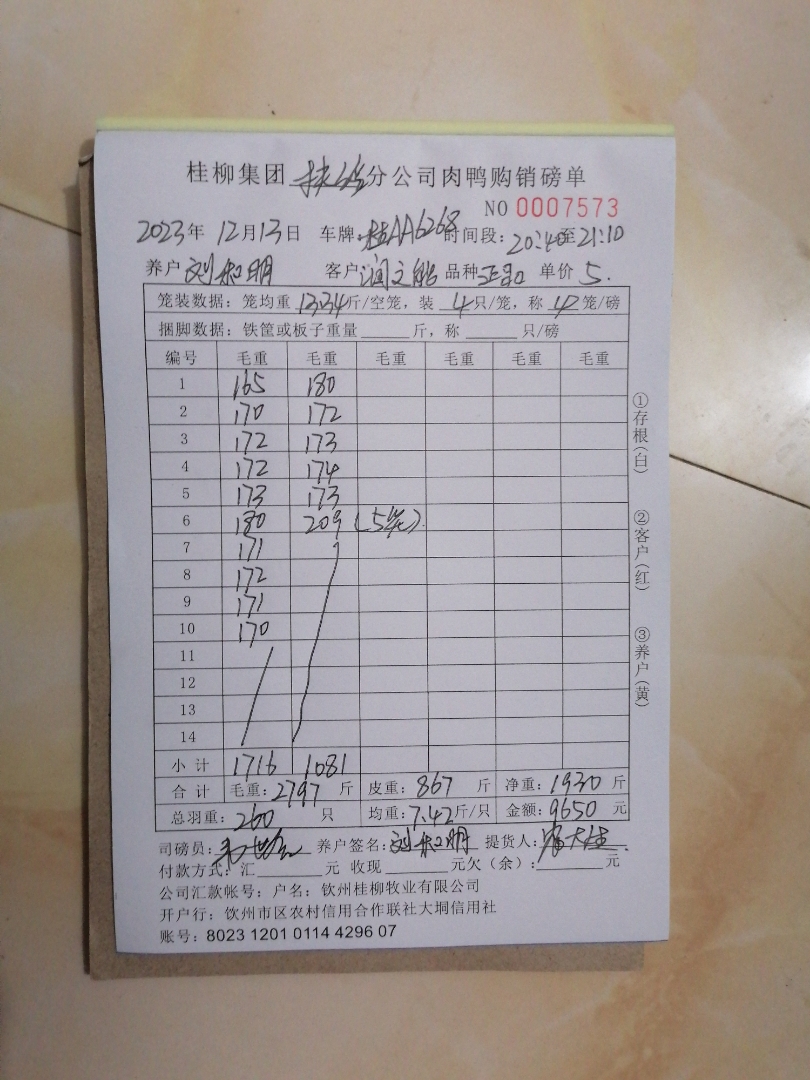 桂柳集团 分公司肉鸭购销磅单
NO 0007573
2023年 12月13日 车牌:桂AA6268 时间段: 20:40至21:10
养户 刘 明 客户 润文 品种 单价 5.
笼装数据: 笼均重 13.34斤/空笼, 装 4只/笼, 称 4笼/磅
捆脚数据: 铁筐或板子重量 斤, 称 只/磅
编号 毛重 毛重 毛重 毛重 毛重 毛重
1 165 180
2 170 172
3 172 173
4 172 174
5 173 173
6 180 209 (5笼).
7 171
8 172
9 171
10 170
11
12
13
14
小计 1716 1081
合计 毛重: 2797 斤 皮重: 867 斤 净重: 1930 斤
总羽重: 260 只 均重: 7.42斤/只 金额: 9650 元
司磅员: 养户签名: 刘 明 提货人:
付款方式: 汇 元 收现 元欠(余): 元
公司汇款帐号: 户名: 钦州桂柳牧业有限公司
开户行: 钦州市区农村信用合作联社大垌信用社
账号: 8023 1201 0114 4296 07
①存根(白)
②客户(红)
③养户(黄)